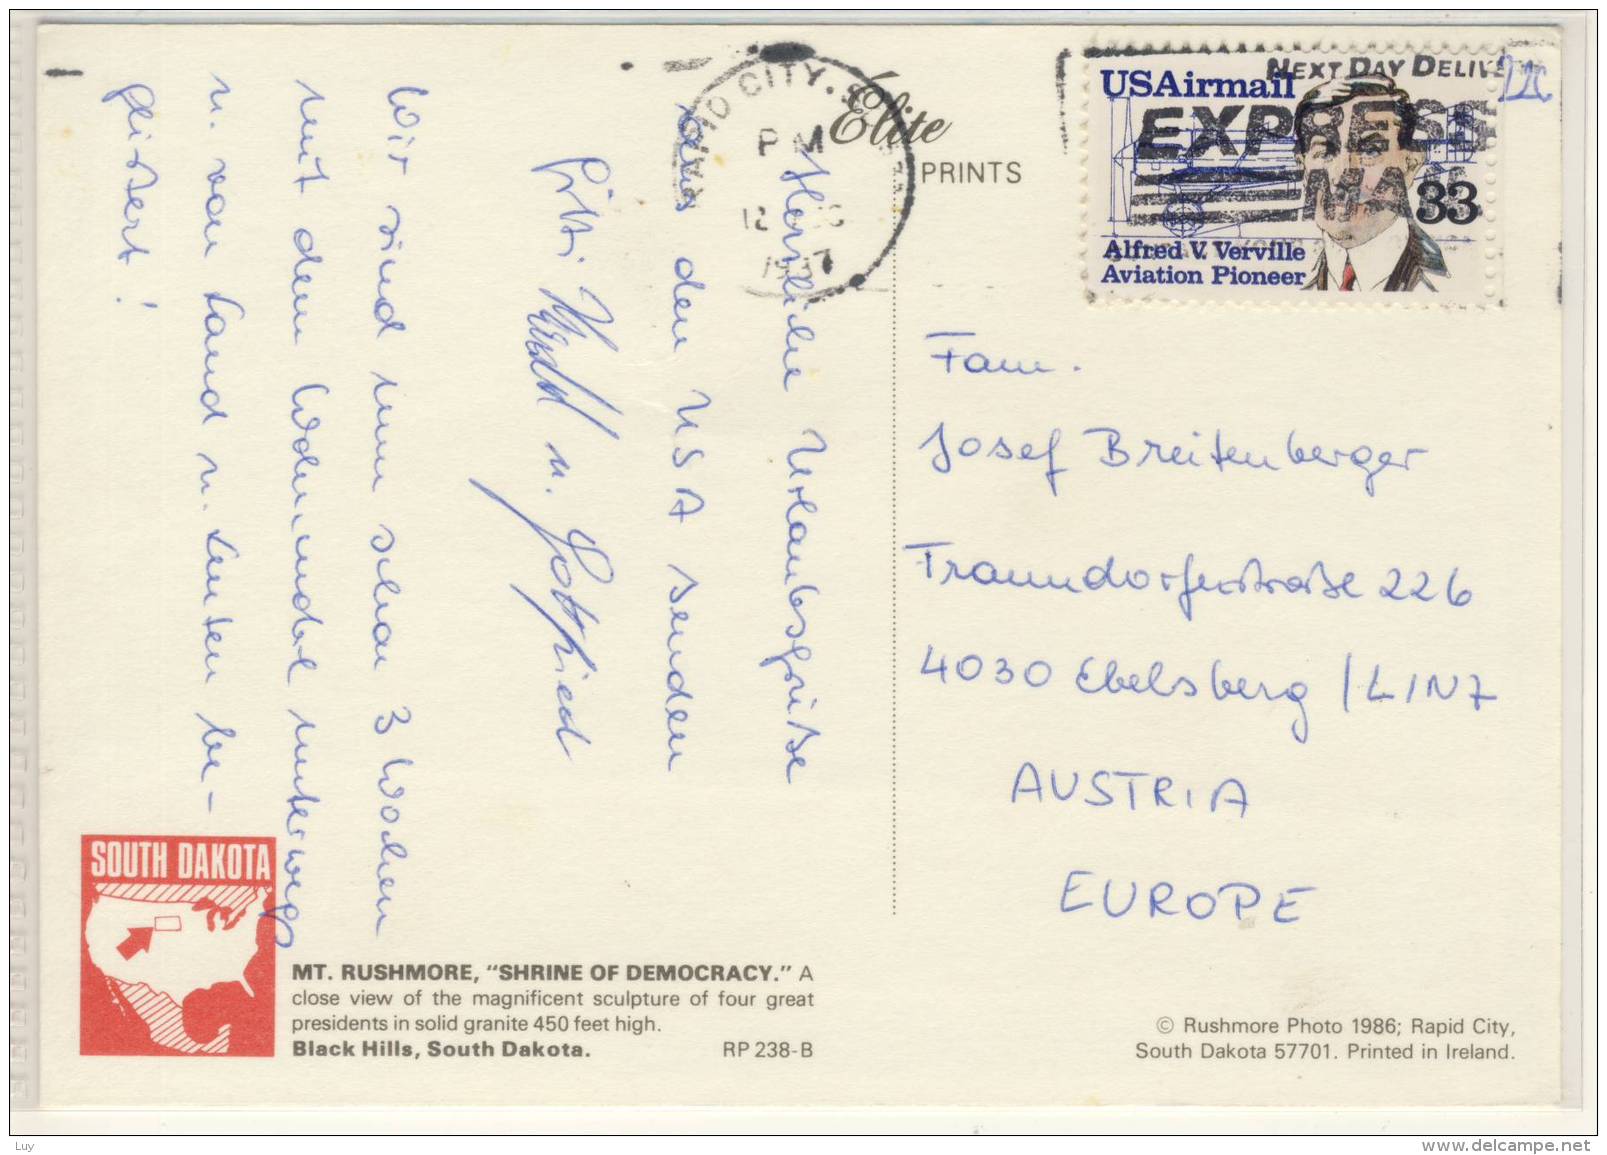 Herzliche Urlaubsgrüße
aus den USA senden
Gitti u. Gottfried
Wir sind nun schon 3 Wochen
mit dem Wohnmobil unterwegs
u. von Land u. Leuten be-
geistert!
SOUTH DAKOTA
MT. RUSHMORE, "SHRINE OF DEMOCRACY." A
close view of the magnificent sculpture of four great
presidents in solid granite 450 feet high.
Black Hills, South Dakota. RP 238-B
Elite
PRINTS
RAPID CITY, S
PM
12
NEXT DAY DELIVE
EXPRESS
MAIL
USAirmail
33
Alfred V. Verville
Aviation Pioneer
Fam.
Josef Breitenberger
Traundorferstraße 226
4030 Ebelsberg / LINZ
AUSTRIA
EUROPE
© Rushmore Photo 1986; Rapid City,
South Dakota 57701. Printed in Ireland.
Luy
www.delcampe.net